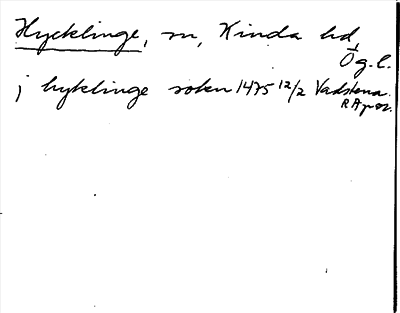 Hycklinge, sn, Kinda hd,
Ög. l.
j hyklinge sokn 1475 12/2 Vadstena.
RAp or.